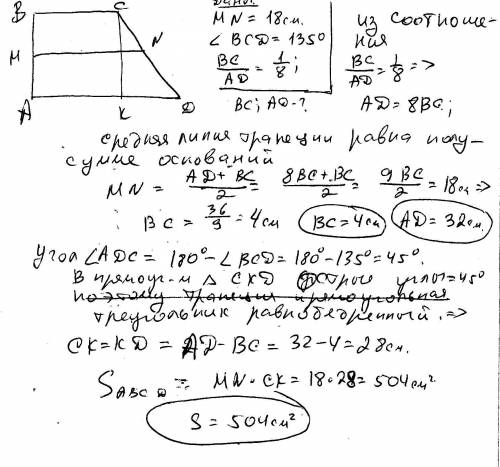 B C
M N
A K D
Дано:
MN = 18см.
∠ BCD = 135°
BC/AD = 1/8;
BC; AD-?
из соотноше-
ния
BC/AD = 1/8 =>
AD = 8BC;
средняя линия трапеции равна полу-
сумме оснований
MN = (AD + BC)/2 = (8BC + BC)/2 = 9BC/2 = 18см =>
BC = 36/9 = 4см BC = 4см AD = 32см.
Угол ∠ADC = 180° - ∠BCD = 180° - 135° = 45°.
В прямоуг-м Δ CKD острые углы = 45°
поэтому трапеция прямоугольная
треугольник равнобедренный. =>
CK = KD = AD - BC = 32 - 4 = 28см.
S ABCD = MN · CK = 18 · 28 = 504см²
S = 504см²